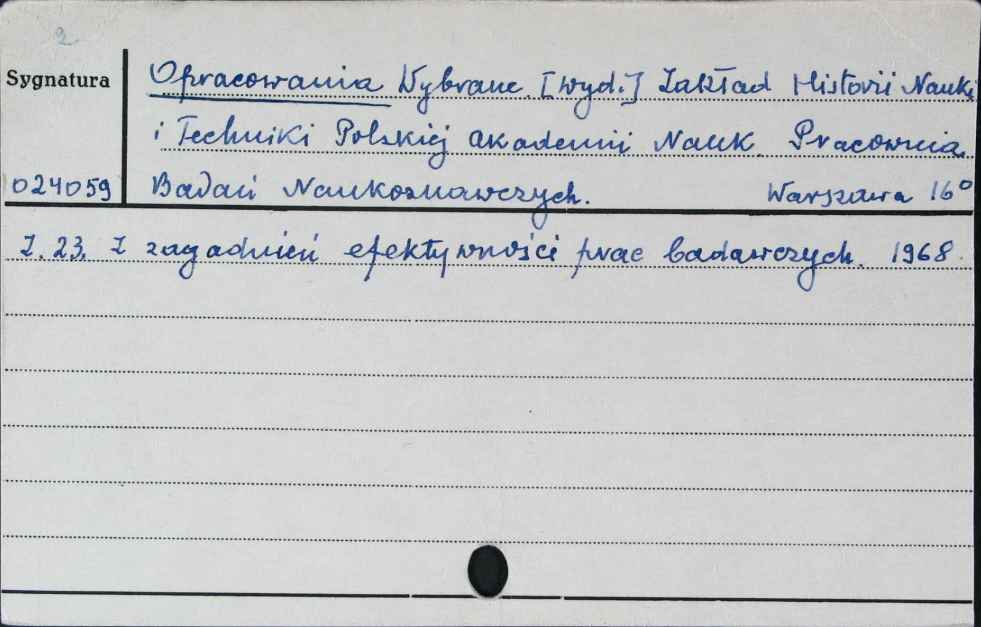 2
Sygnatura
Opracowania Wybrane. [wyd.] Zakład Historii Nauki
i Techniki Polskiej Akademii Nauk. Pracownia
024059 Badań Naukoznawczych. Warszawa 16°
Z. 23. Z zagadnień efektywności prac badawczych. 1968.